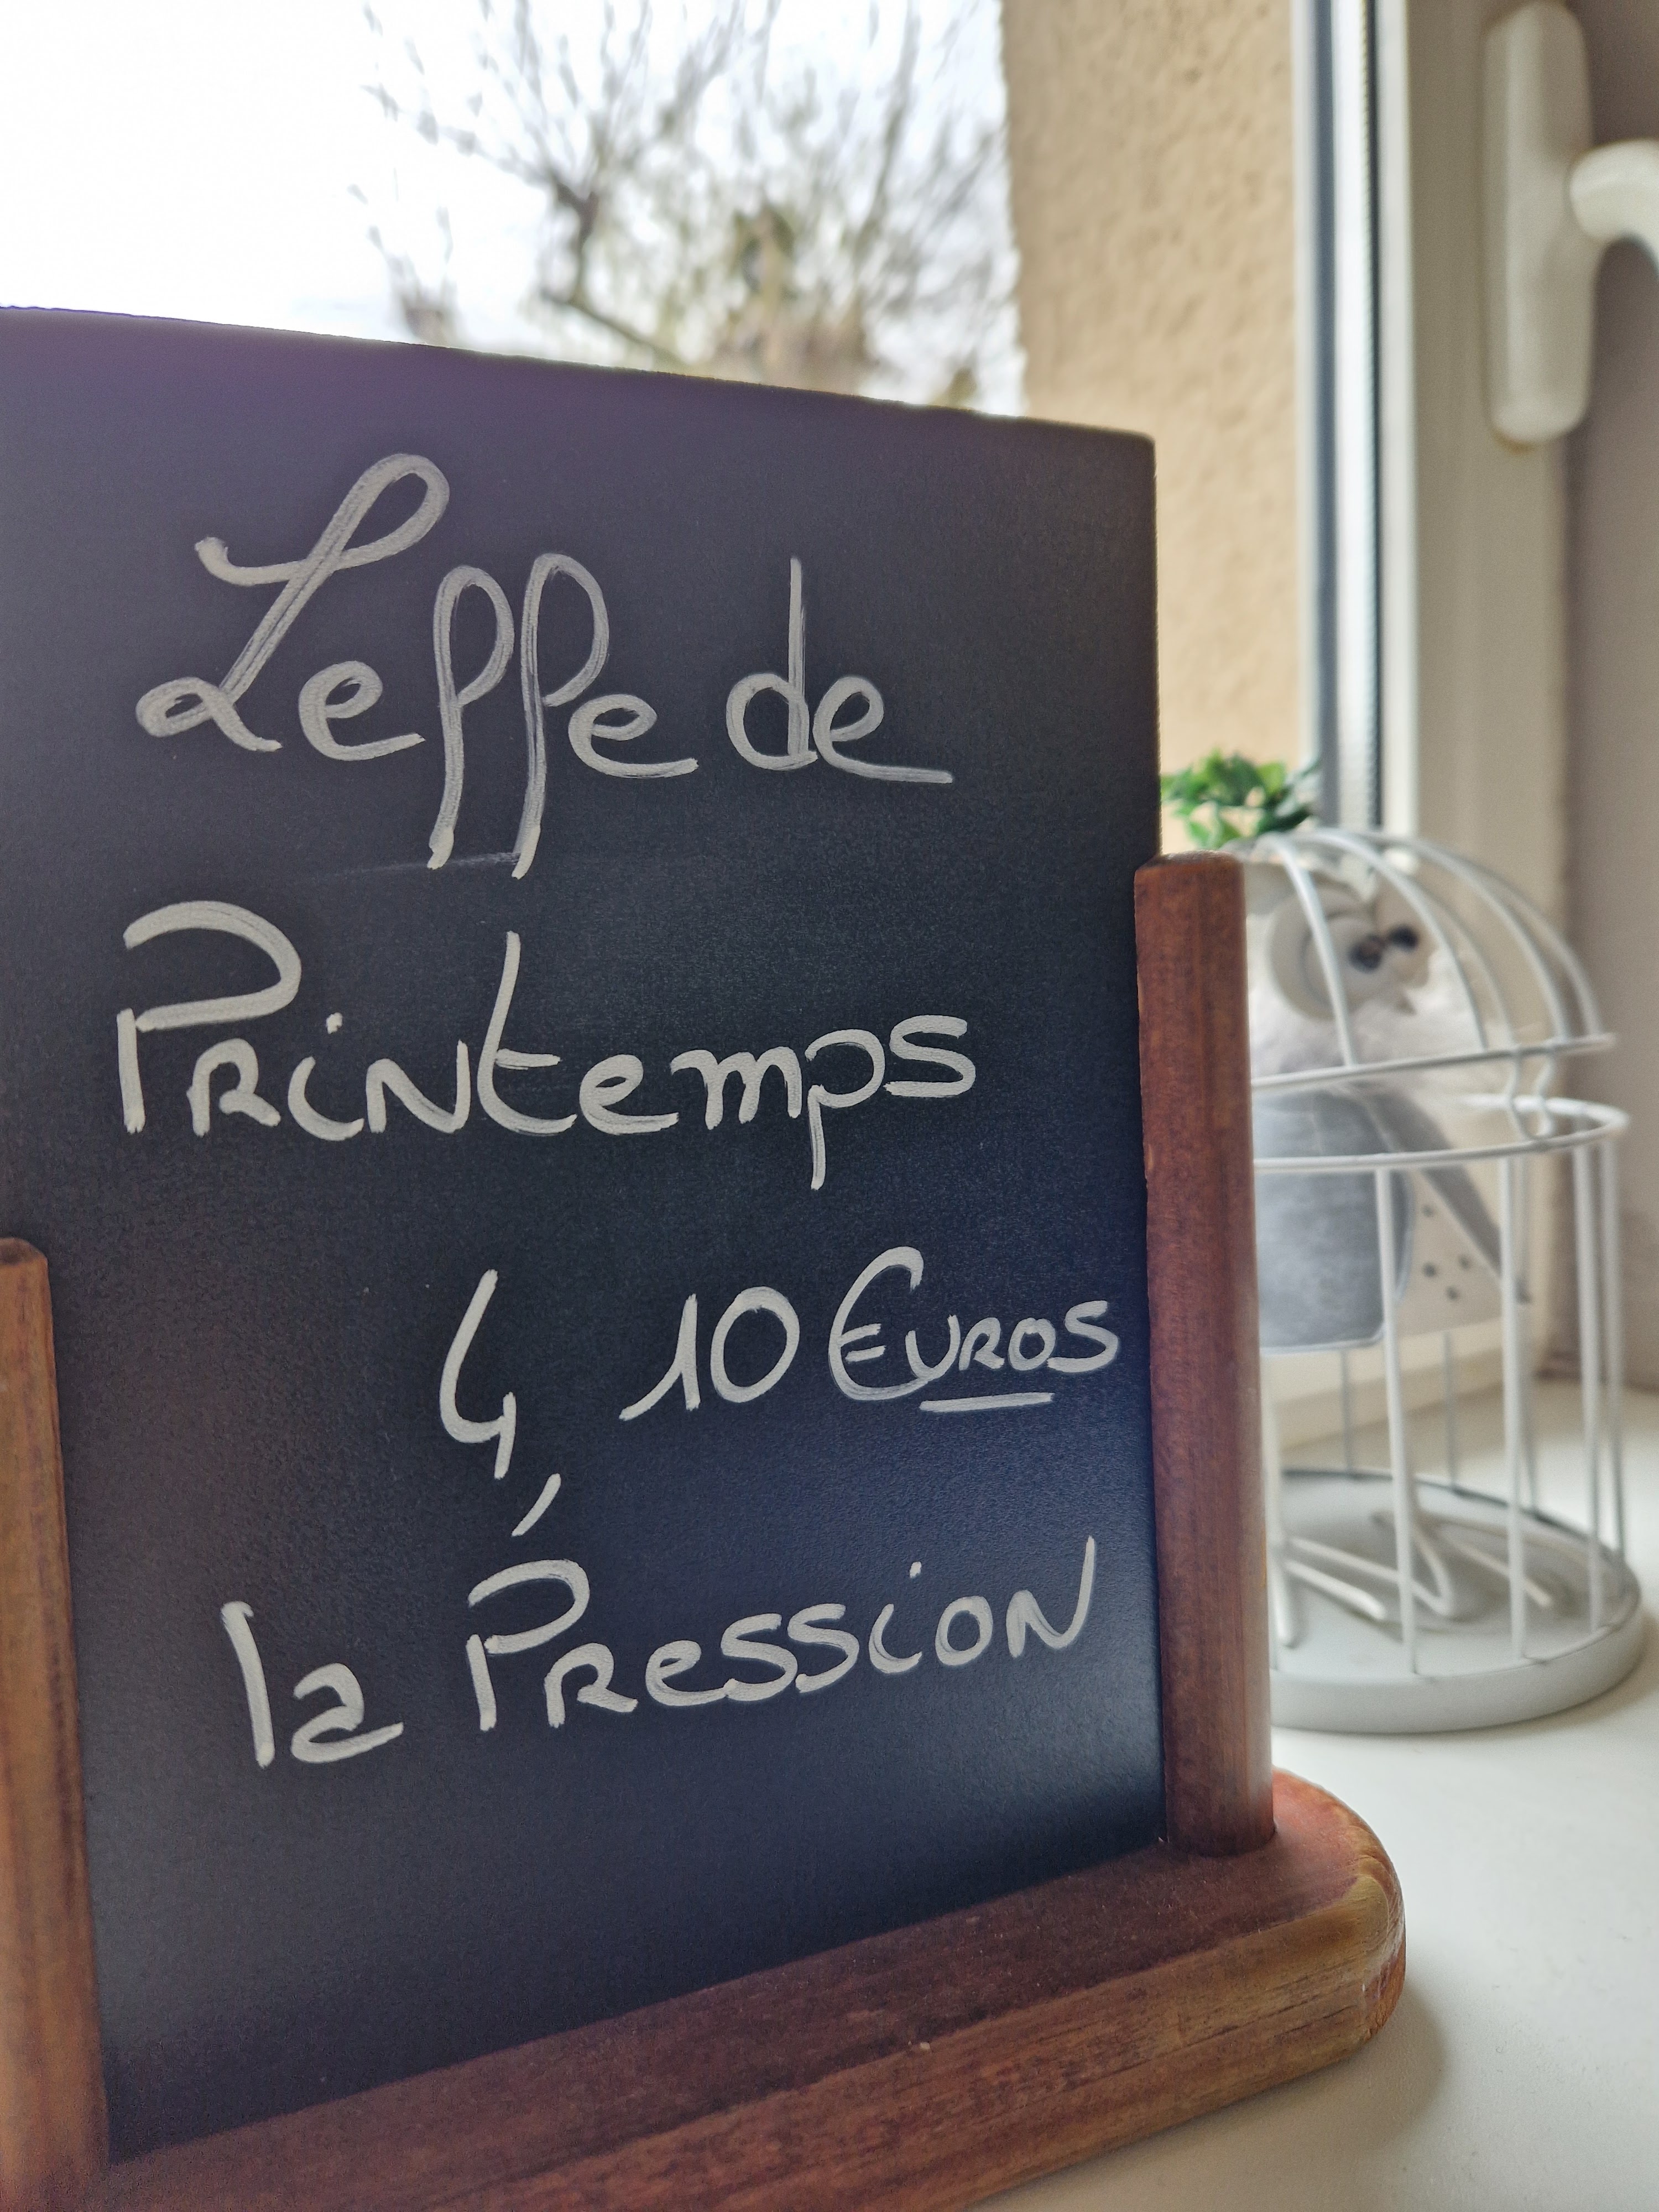 Leffe de
Printemps
4,10 Euros
la Pression